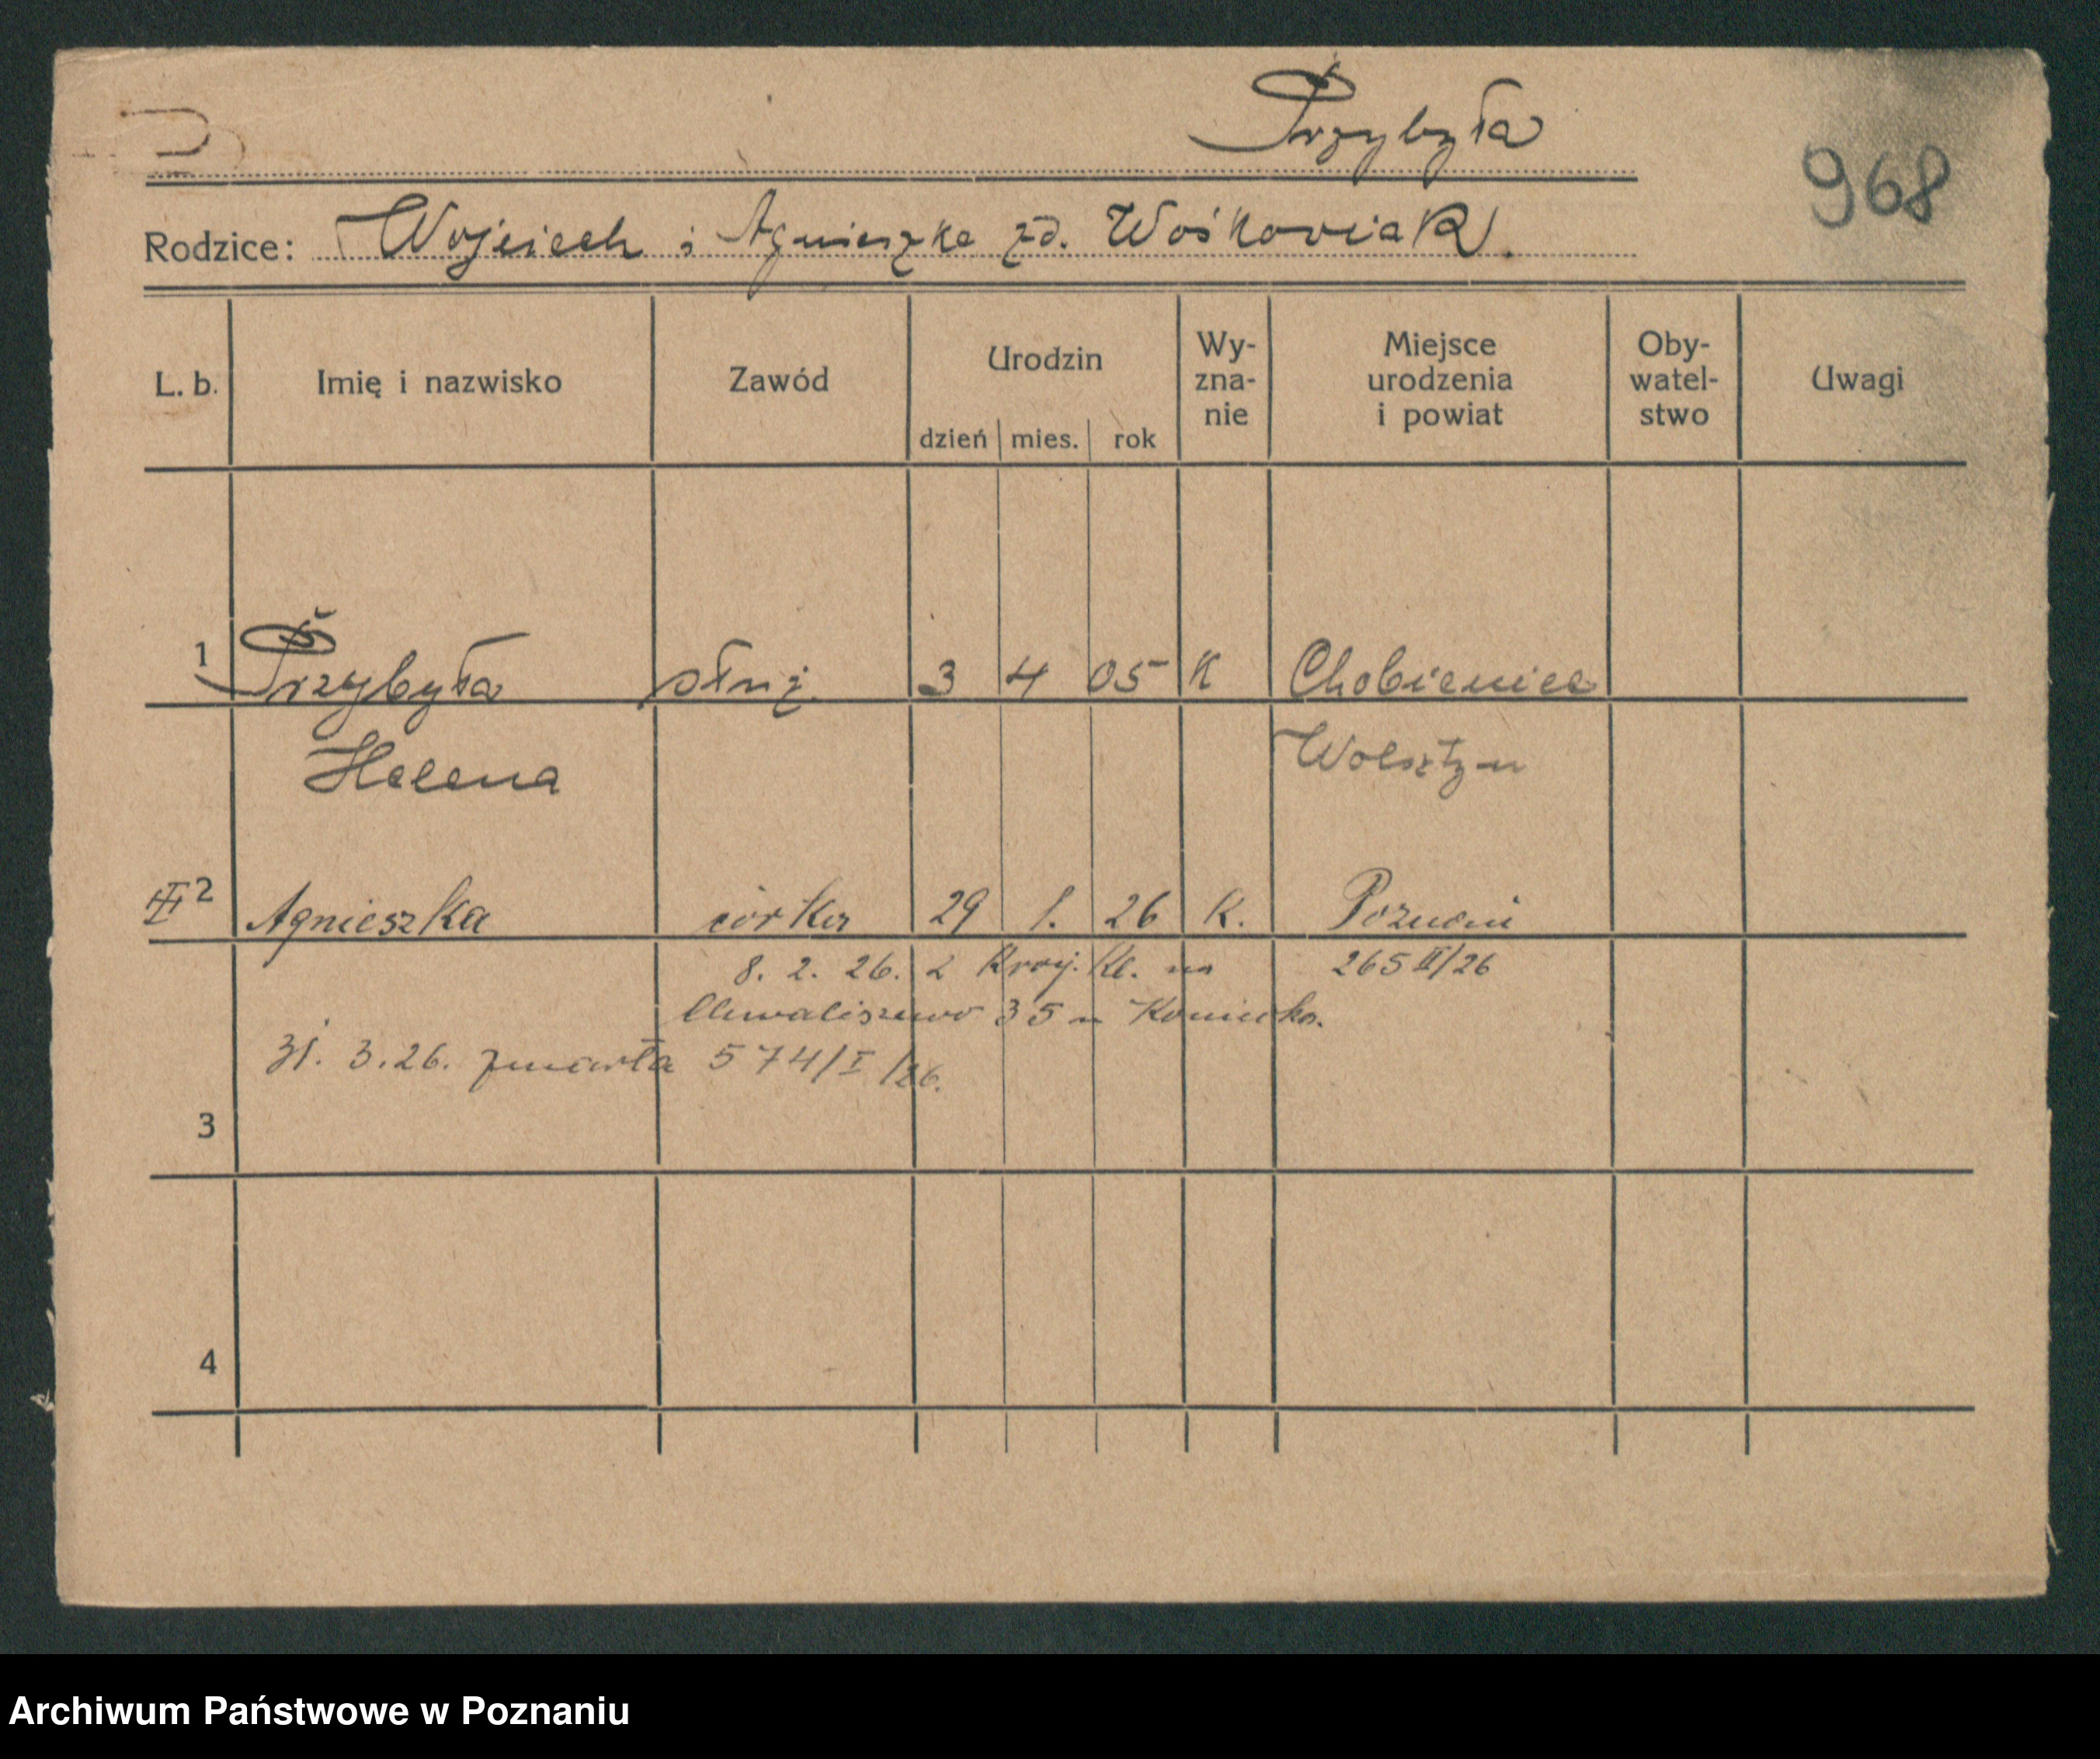 Przybyła
968
Rodzice: Wojciech i Agnieszka zd. Wośkowiak.
L. b. Imię i nazwisko Zawód Urodzin dzień mies. rok Wy-zna-nie Miejsce urodzenia i powiat Oby-watel-stwo Uwagi
1 Przybyła służ. 3 4 05 K Chobienice
Helena Wolsztyn
2 Agnieszka córka 29 1. 26 K. Poznań
8. 2. 26. z Kl. na 265 II/26
Chwaliszewo 35 u
31. 3. 26. zmarła 574/I/26.
3
4
Archiwum Państwowe w Poznaniu